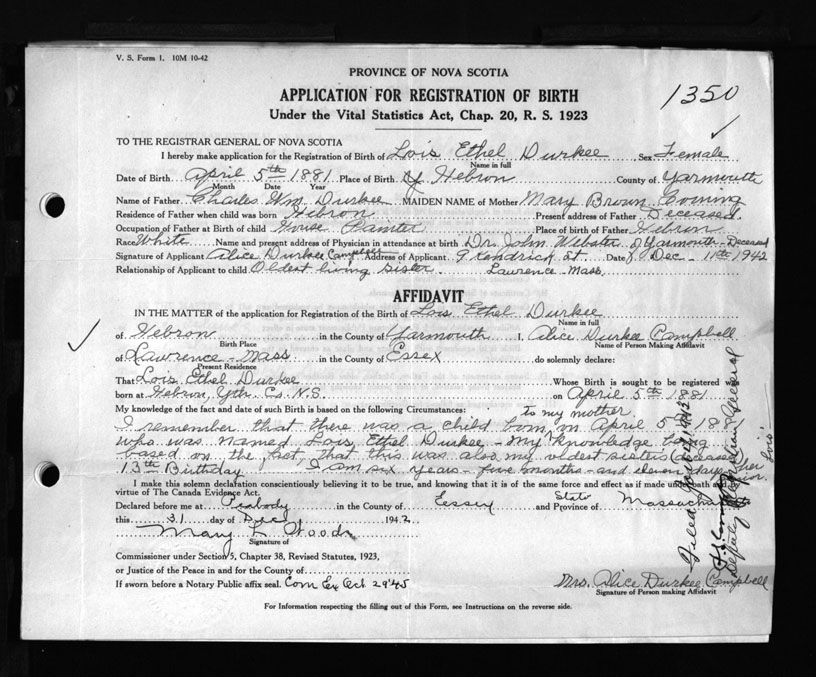 V. S. Form 1. 10M 10-42
PROVINCE OF NOVA SCOTIA
APPLICATION FOR REGISTRATION OF BIRTH
1350
Under the Vital Statistics Act, Chap. 20, R. S. 1923
TO THE REGISTRAR GENERAL OF NOVA SCOTIA
I hereby make application for the Registration of Birth of Lois Ethel Durkee Sex Female
Name in full
Date of Birth April 5th 1881 Place of Birth Hebron County of Yarmouth
Month Date Year
Name of Father Charles Wm Durkee MAIDEN NAME of Mother Mary Brown
Residence of Father when child was born Hebron Present address of Father Deceased.
Occupation of Father at Birth of child House Painter Place of birth of Father Hebron
Race White Name and present address of Physician in attendance at birth Dr. John Webster of Yarmouth - Deceased
Signature of Applicant Alice Durkee Campbell Address of Applicant 9 Kendrick St. Date Dec - 11th 1942
Relationship of Applicant to child Oldest living sister. Lawrence Mass.
AFFIDAVIT
IN THE MATTER of the application for Registration of the Birth of Lois Ethel Durkee
Name in full
of Hebron in the County of Yarmouth I, Alice Durkee Campbell
Birth Place Name of Person Making Affidavit
of Lawrence - Mass in the County of Essex do solemnly declare:
Present Residence
That Lois Ethel Durkee Whose Birth is sought to be registered was
born at Hebron, Yth. Co. N.S. on April 5th 1881
My knowledge of the fact and date of such Birth is based on the following Circumstances: to my mother.
I remember that there was a child born on April 5th 188
who was named Lois Ethel Durkee - My knowledge being
based on the fact, that this was also my oldest sisters (deceased)
13th Birthday. I am six years - five months - and eleven days her senior. Lois'
I make this solemn declaration conscientiously believing it to be true, and knowing that it is of the same force and effect as if made under oath and by
virtue of The Canada Evidence Act.
Declared before me at Peabody in the County of Essex State and Province of Massachusetts
this 31 day of Dec 1942
Mary L. Woods
Signature of
Commissioner under Section 5, Chapter 38, Revised Statutes, 1923,
or Justice of the Peace in and for the County of
If sworn before a Notary Public affix seal. Com Ex Oct 29 '45
Mrs. Alice Durkee Campbell
Signature of Person making Affidavit
For Information respecting the filling out of this Form, see Instructions on the reverse side.
Filed
Deputy Registrar General